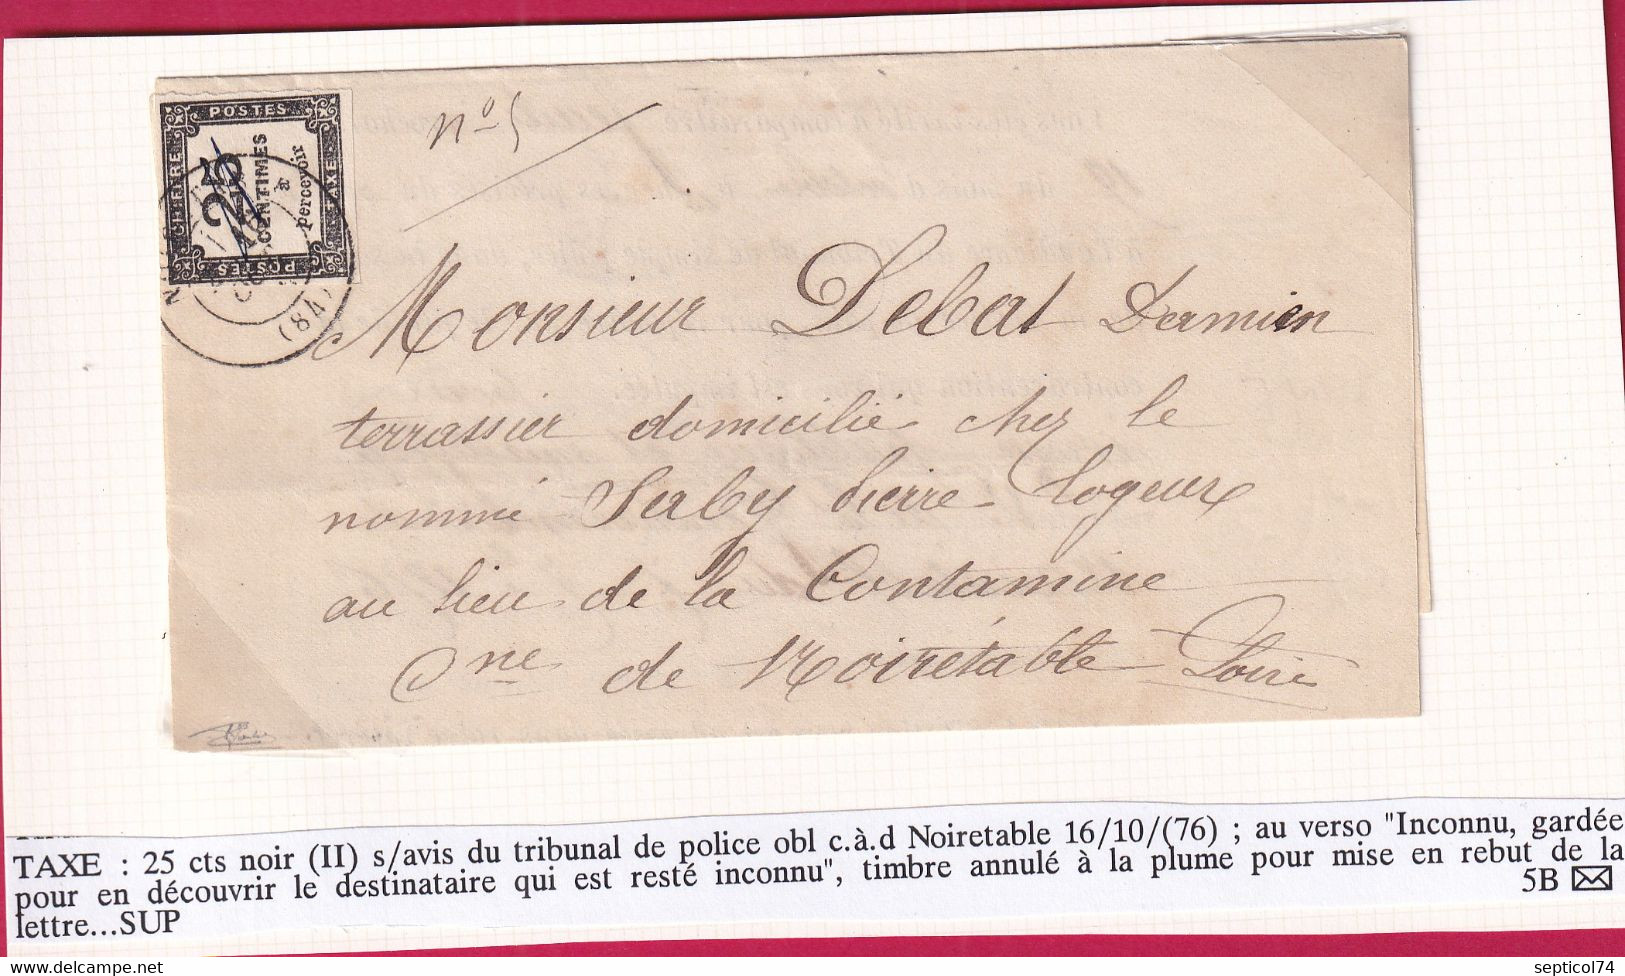 n° 5
POSTES
CHIFFRE
TAXE
25
CENTIMES
à
percevoir
POSTES
(84)
Monsieur Lebat Damien
terrassier domicilié chez le
nommé Serby pierre logeur
au lieu de la Contamine
Cne de Noirétable Loire
TAXE : 25 cts noir (II) s/avis du tribunal de police obl c.à.d Noiretable 16/10/(76) ; au verso "Inconnu, gardée
pour en découvrir le destinataire qui est resté inconnu", timbre annulé à la plume pour mise en rebut de la
lettre...SUP 5B
septicol74